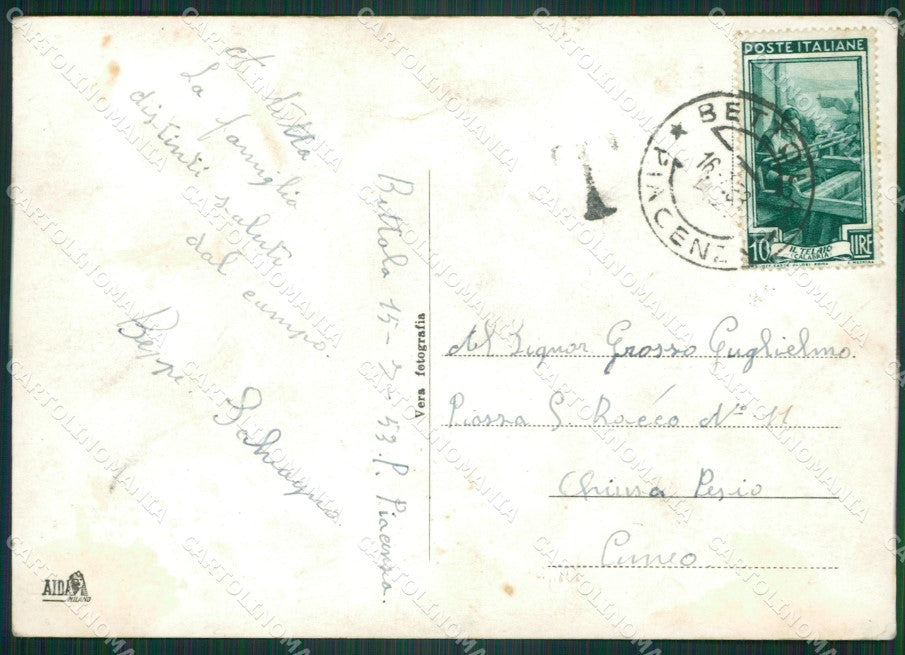 A tutta
La famiglia
distinti saluti
dal campo.
Beppe
Bettola 15-7-53. P. Piacenza.
Vera fotografia
AIDA
MILANO
T
BETTOLA
★ PIACENZA
16
POSTE ITALIANE
10 LIRE
IL TELAIO
CALABRIA
Al Signor Grosso Guglielmo.
Piazza S. Rocco N° 11
Chiusa Pesio
Cuneo.
CARTOLINOMANIA